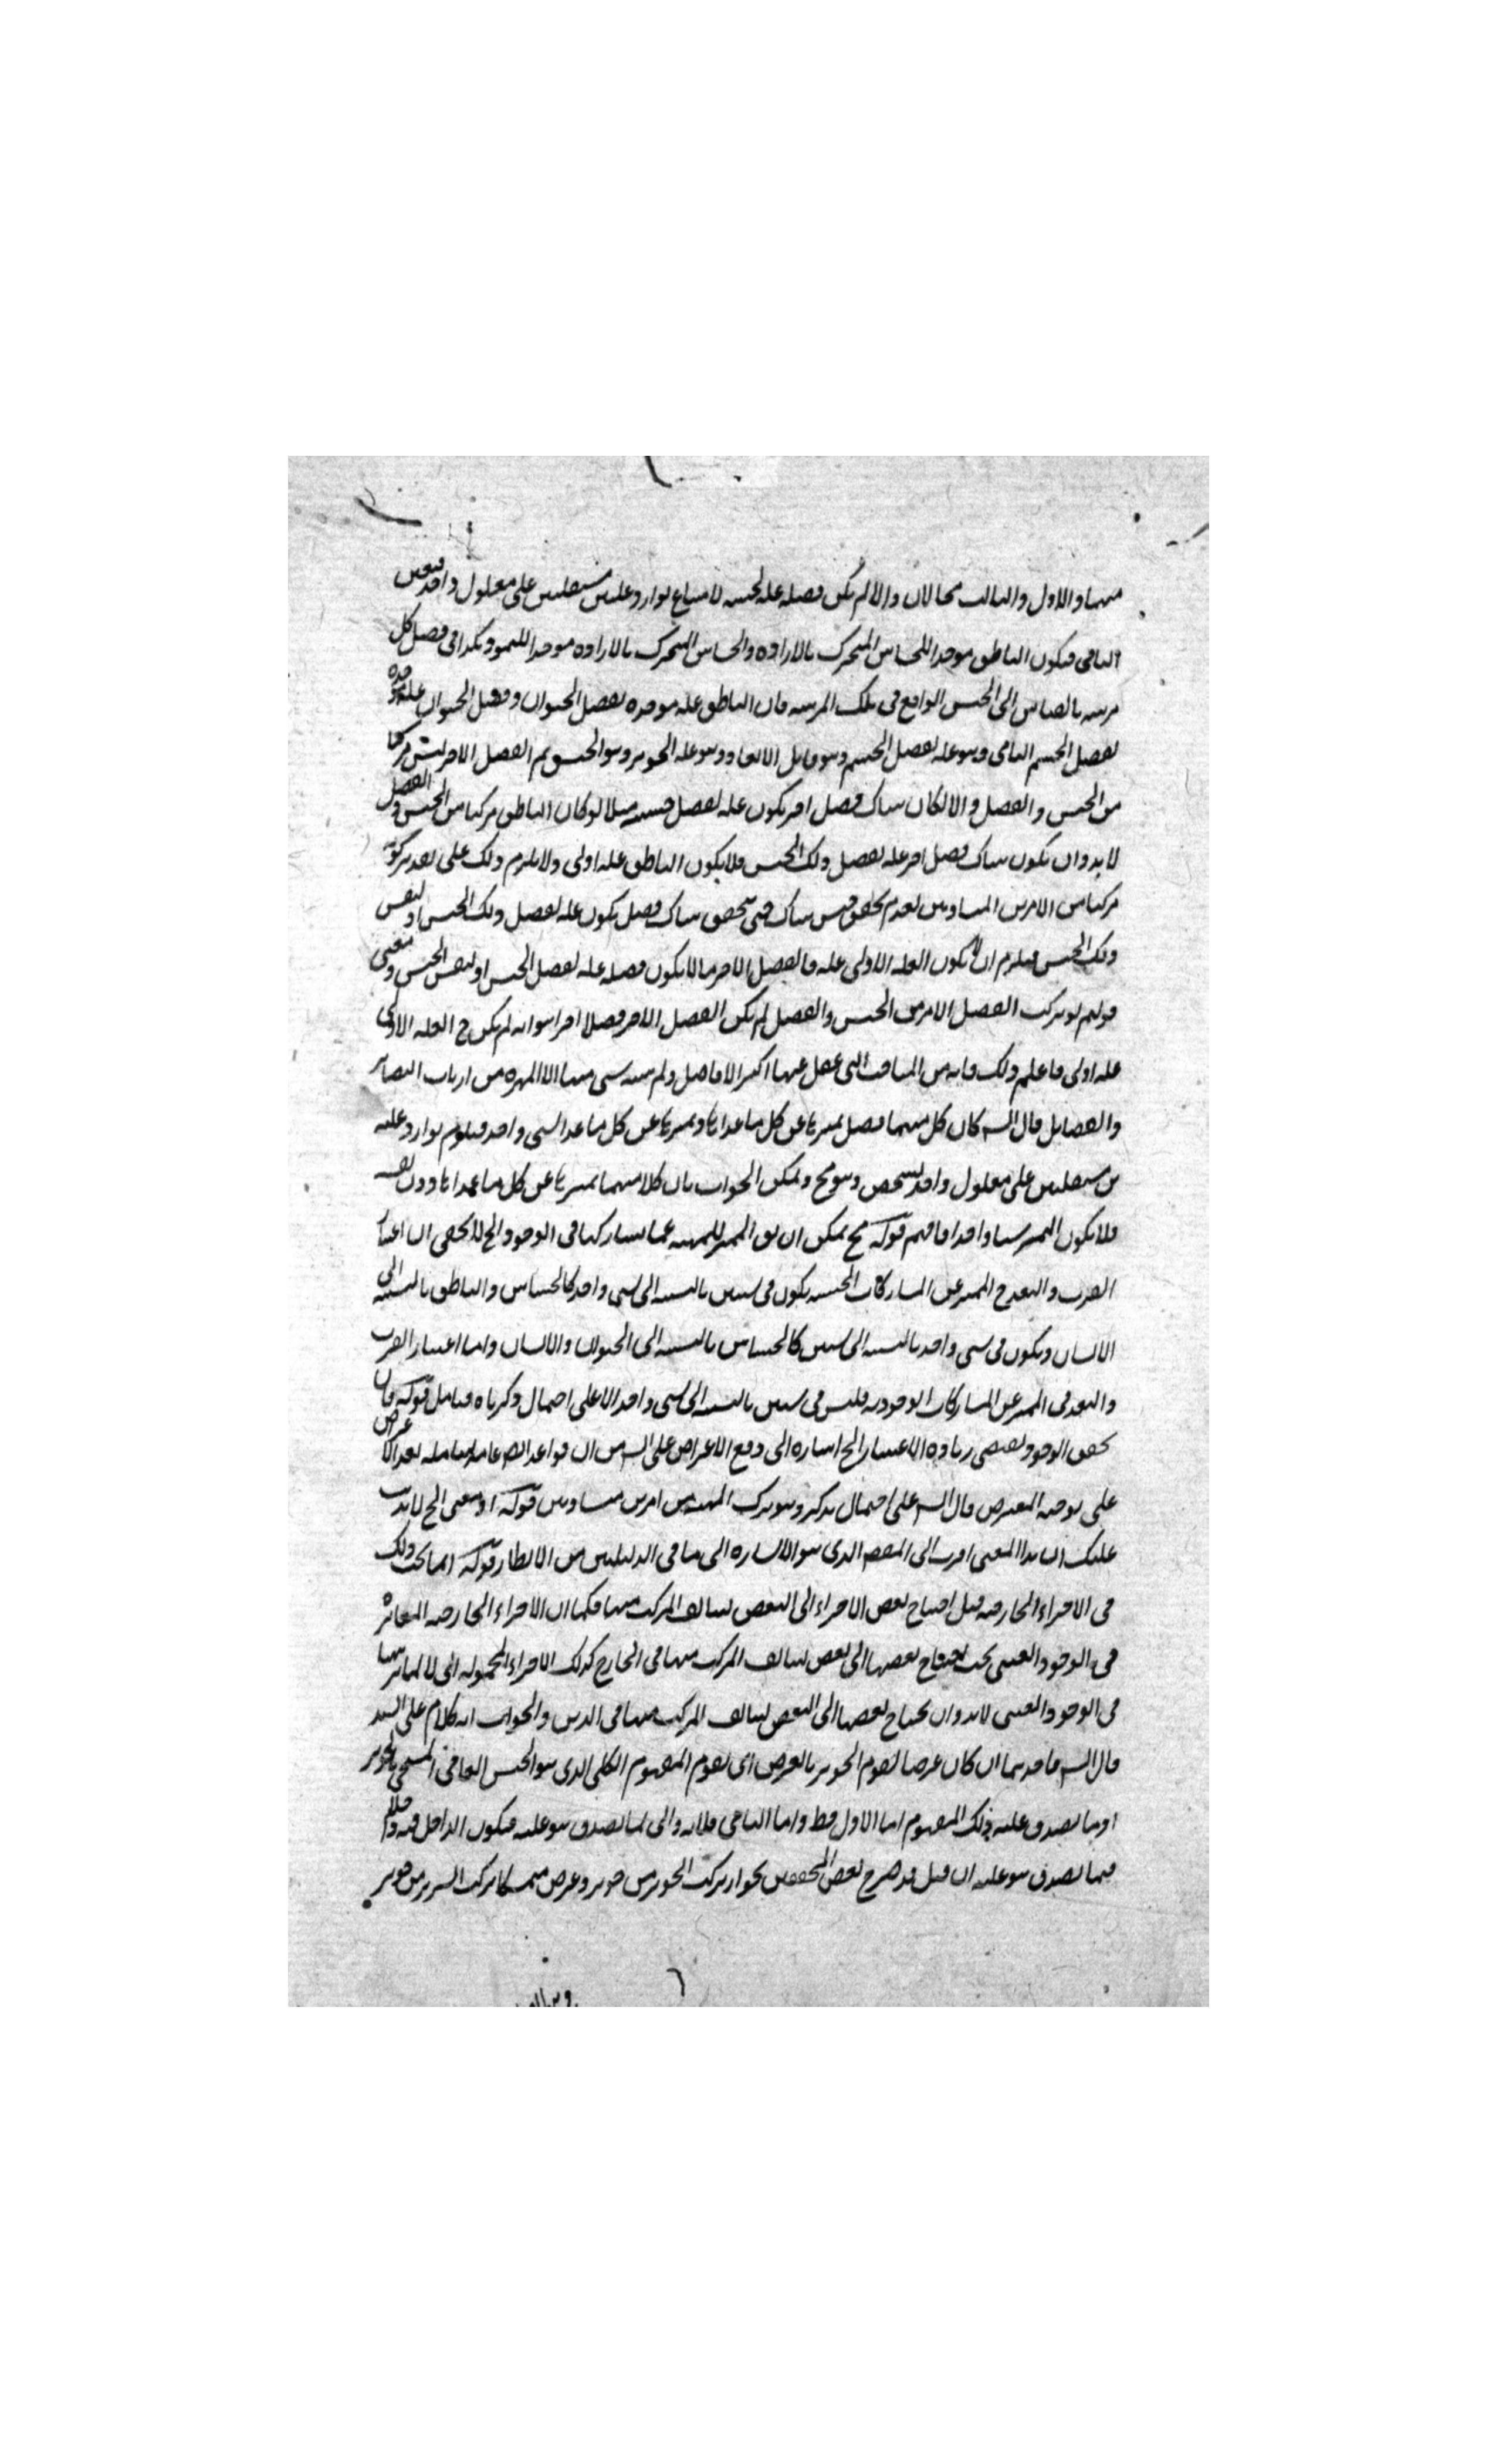 منهما والاول والثالث محالان والا لم يكن فصله علة لجنسه لامتناع توارد علتين مستقلتين على معلول واحد فتعين
الثاني فيكون الناطق موجدا للحساس المتحرك بالارادة والحساس المتحرك بالارادة موجدا للنمو وهكذا في فصل كل
مرتبة بالقياس الى الجنس الواقع في تلك المرتبة فان الناطق علة موجدة لفصل الحيوان وفصل الحيوان علة موجدة
لفصل الجسم النامي وهو علة لفصل الجسم وهو قابل الابعاد وهو علة الجوهر وهو الجنس ثم الفصل الاخير ليس مركبا
من الجنس والفصل والا لكان هناك فصل اخر يكون علة لفصل جنسه مثلا لو كان الناطق مركبا من الجنس والفصل
لا بد وان يكون هناك فصل اخر علة لفصل ذلك الجنس فلا يكون الناطق علة اولى ولا يلزم ذلك على تقدير كونه
مركبا من الامرين المتساويين لعدم تحقق جنس هناك حتى يتحقق هناك فصل يكون علة لفصل ذلك الجنس او لنفس
ذلك الجنس فيلزم ان لا يكون العلة الاولى علة فالفصل الاخير ما لا يكون فصله علة لفصل الجنس او لنفس الجنس ومعنى
قولهم لو تركب الفصل الاخير من الجنس والفصل لم يكن الفصل الاخير فصلا اخيرا هو انه لم يكن ح العلة الاولى
علة اولى فاعلم ذلك فانه من المباحث التي غفل عنها اكثر الافاضل ولم يتنبه شي منها الا المهرة من ارباب البصائر
والفضايل قال الش كان كل منهما فصل يميزها عن كل ما عداها وتميزها عن كل ما عدا شي واحد فيلزم توارد علتين
مستقلتين على معلول واحد شخصي وهو مح ويمكن الجواب بان كلا منهما يميزها عن كل ما عداها دون
فلا يكون التميز شيا واحدا فافهم قوله مح يمكن ان يق المميز للمهية عما يشاركها في الوجود الخ لا يخفى ان اعتبار
القرب والبعد ح المميز عن المشاركات الجنسية يكون في شيئين بالنسبة الى شي واحد كالحساس والناطق بالنسبة الى
الانسان ويكون في شي واحد بالنسبة الى شيئين كالحساس بالنسبة الى الحيوان والانسان واما اعتبار القرب
والبعد في المميز عن المشاركات الوجودية فليس في شيئين بالنسبة الى شي واحد الا على احتمال ذكرناه فتامل قوله فان
تحقق الوجود يقتضي زيادة الاعتبار الخ اشارة الى دفع الاعتراض على الش من ان قواعد
على توجيه المعترض قال الش على احتمال يذكر وهو تركب المهية من امرين متساويين قوله او معنى الخ لا يذهب
عليك ان هذا المعنى اقرب الى المقصد الذي هو الاشارة الى ما في الدليلين من الانظار قوله انما يجب ذلك
في الاجزاء الخارجية قيل احتياج بعض الاجزاء الى البعض ليتالف المركب منها فكما ان الاجزاء الخارجية المتمايزة
في الوجود العيني يجب احتياج بعضها الى بعض ليتالف المركب منها في الخارج كذلك الاجزاء المحمولة التي لا تمايز بينها
في الوجود العيني لا بد وان يحتاج بعضها الى البعض ليتالف المركب منها في الذهن والجواب انه كلام على السند
قال الش فاحدهما ان كان عرضا لقوم الجوهر بالعرض اي لقوم المفهوم الكلي الذي هو الجنس العالي المسمى بالجوهر
او ما يصدق عليه ذلك المفهوم اما الاول فظ واما الثاني فلانه ذاتي لما يصدق هو عليه فيكون الداخل فيه داخلا
فيما يصدق هو عليه ان قيل قد صرح بعض المحققين بجواز تركب الجوهر من جوهر وعرض متمسكا بتركب السرير من جوهر